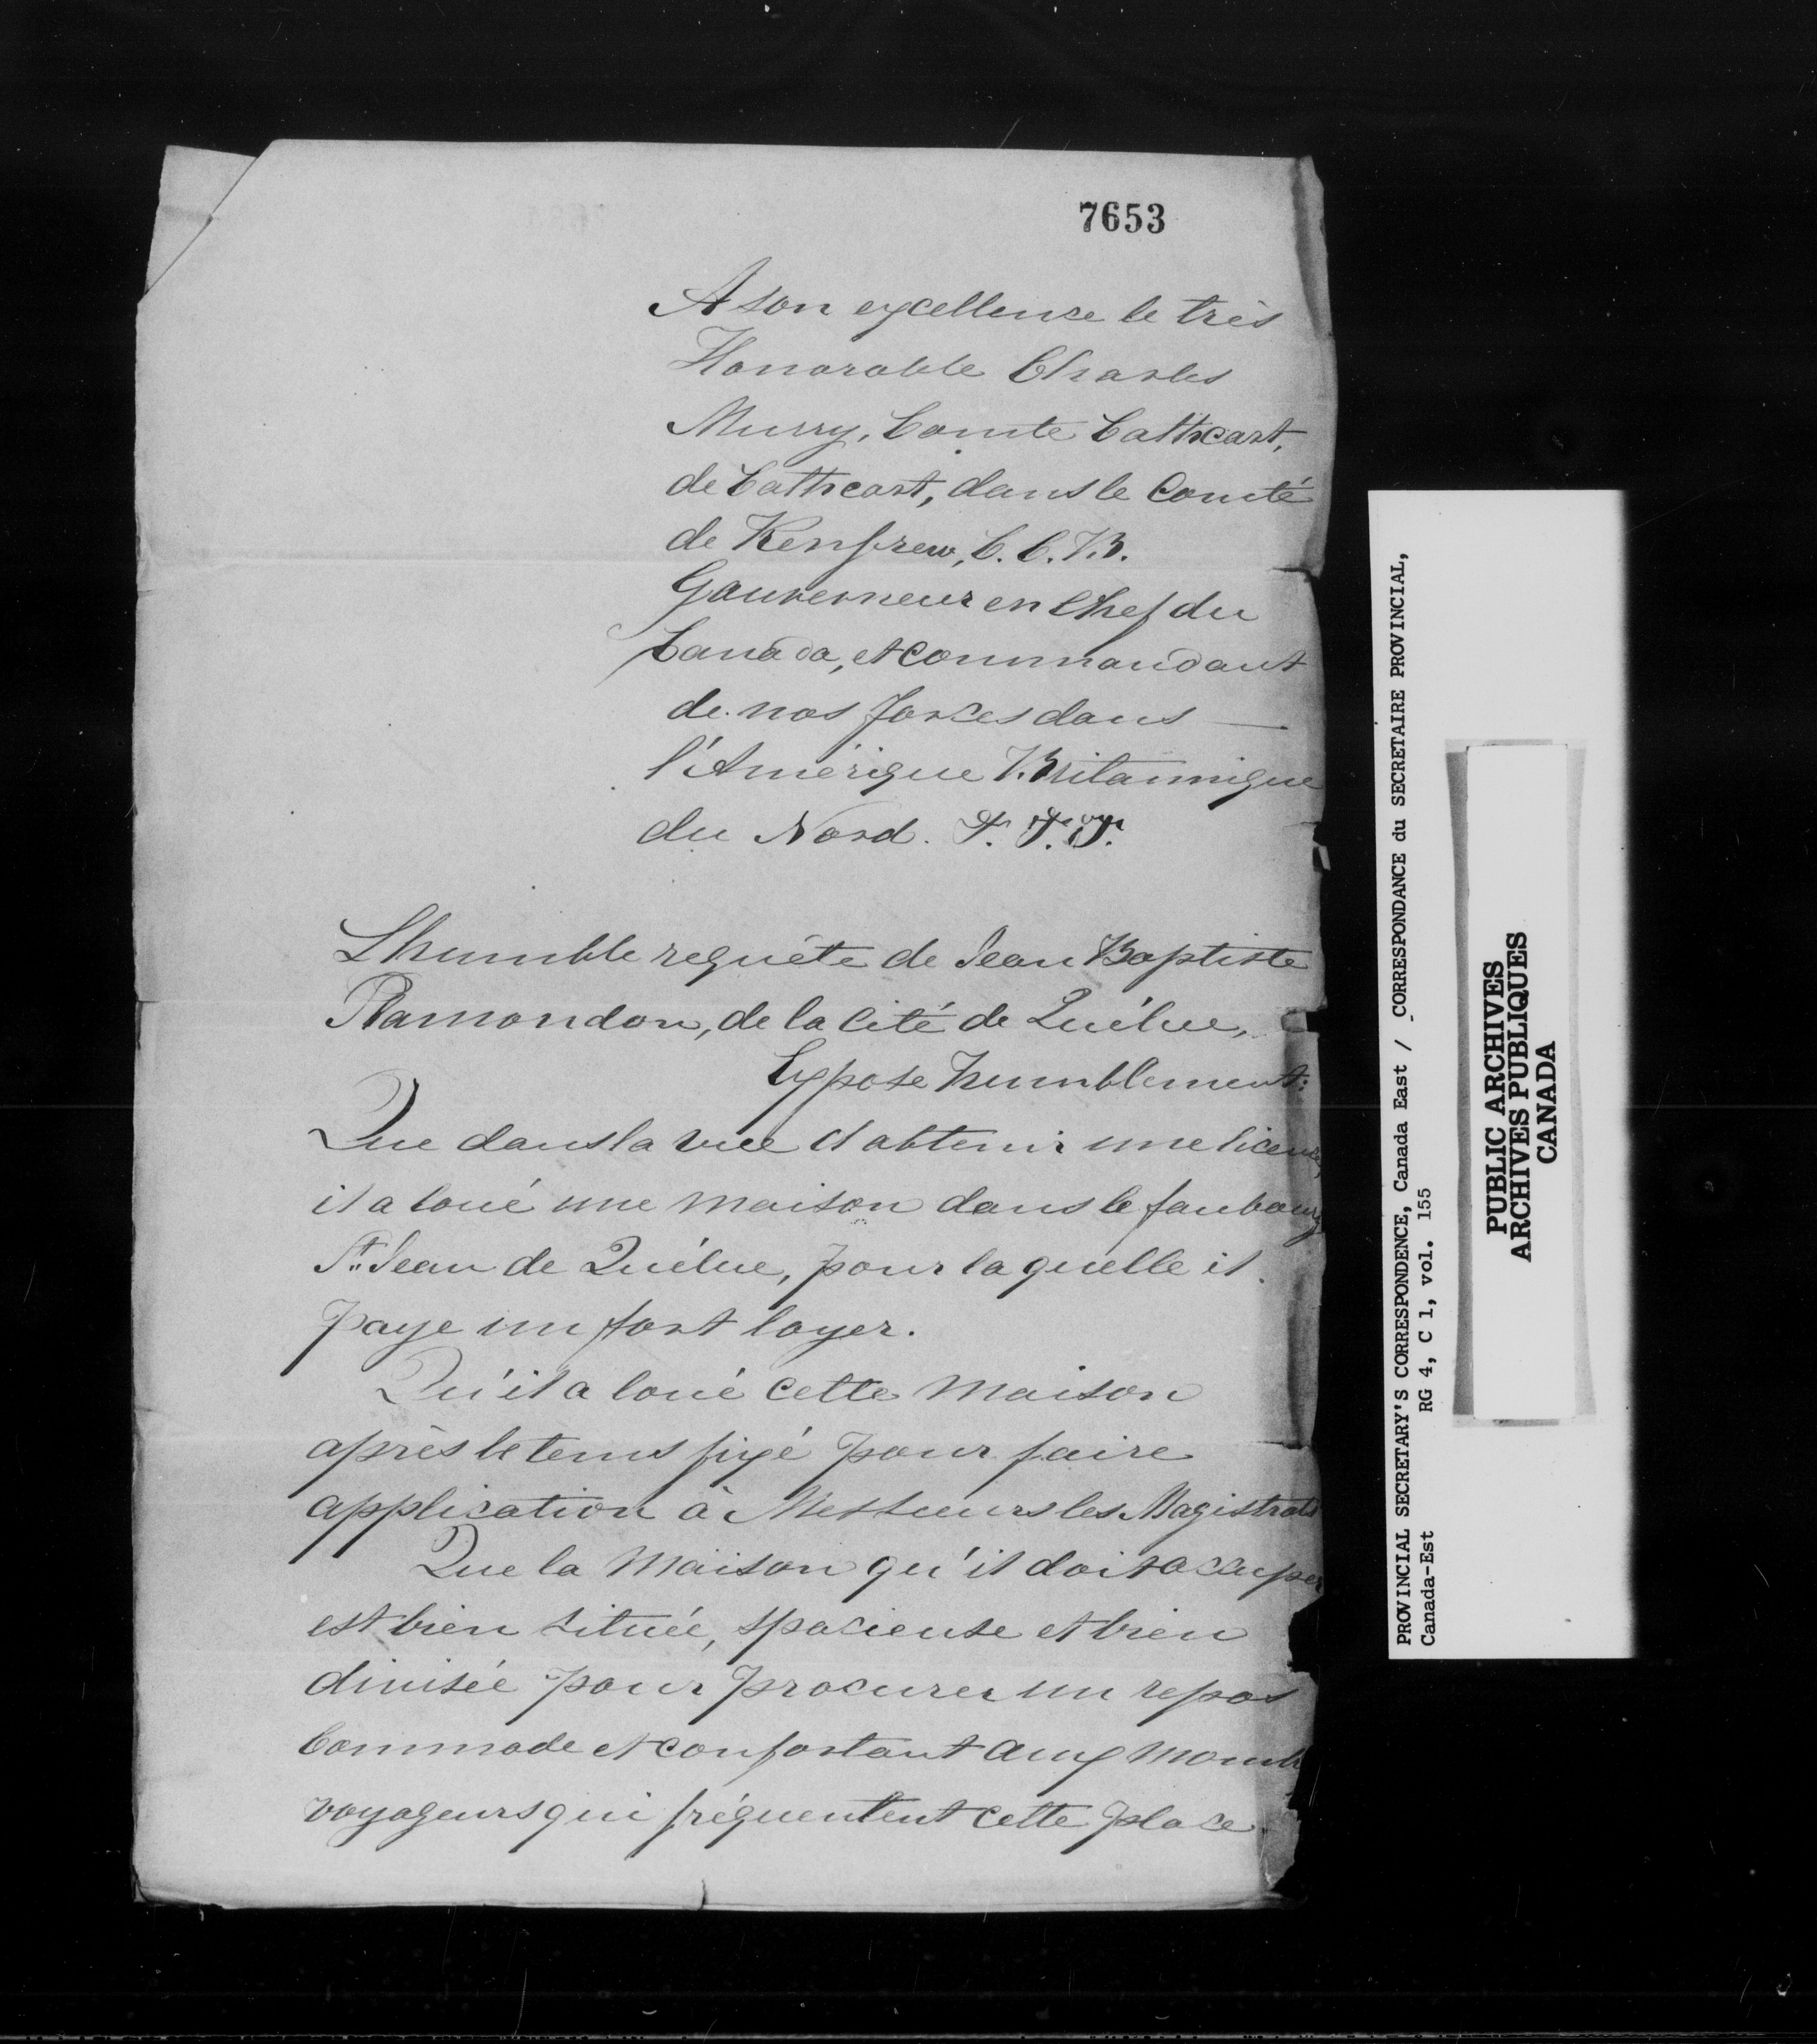 7653
A son excellence le très
Honorable Charles
Murry, Comte Cathcart,
de Cathcart, dans le Comté
de Renfrew, C. C. B.
Gouverneur en Chef du
Canada, et commandant
de nos forces dans
l'Amérique Britannique
du Nord.
L'humble requête de Jean Baptiste
Plamondon, de la cité de Québec,
Expose humblement:
Que dans la vue d'obtenir une licence,
il a loué une maison dans le faubourg
St. Jean de Québec, pour laquelle il
paye un fort loyer.
Qu'il a loué cette maison
après le tems fixé pour faire
application à Messieurs les Magistrats
Que la maison qu'il doit occuper
est bien située, spacieuse et bien
divisée pour procurer un repos
Commode et confortant aux
voyageurs qui fréquentent cette place.
PROVINCIAL SECRETARY'S CORRESPONDENCE, Canada East / CORRESPONDANCE du SECRETAIRE PROVINCIAL,
Canada-Est RG 4, C 1, vol. 155
PUBLIC ARCHIVES
ARCHIVES PUBLIQUES
CANADA